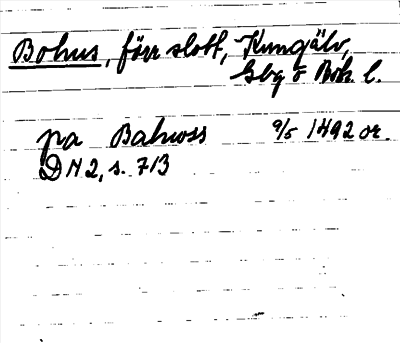 Bohus, förr slott, Kungälv,
Gbg o Boh. l.
pa Bahwss 9/5 1492 or.
DN 2, s. 713